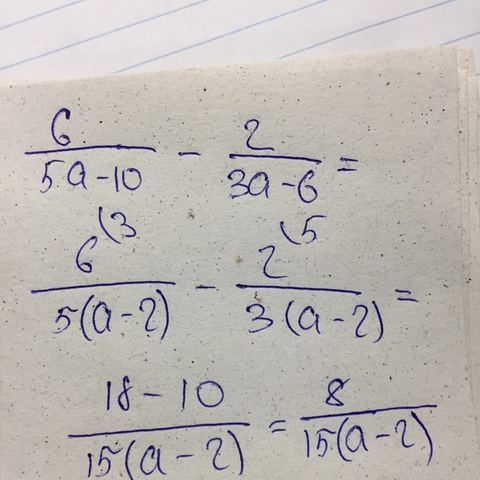 6/(5a-10) - 2/(3a-6) =
6(3/(5(a-2)) - 2(5/(3(a-2)) =
(18-10)/(15(a-2)) = 8/(15(a-2))